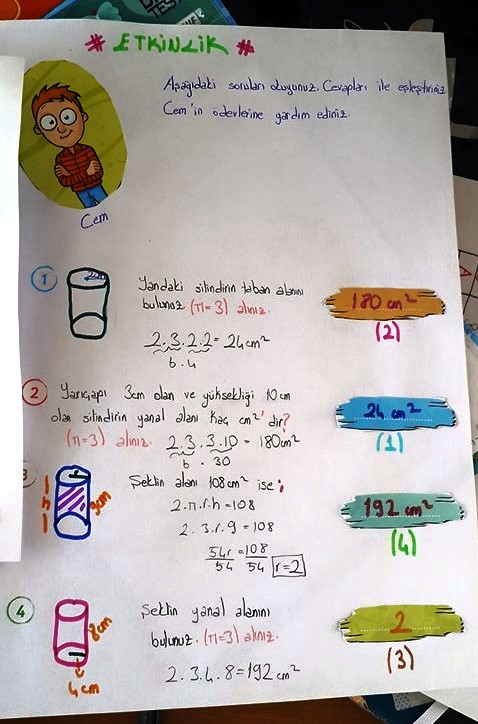 # ETKİNLİK #
Aşağıdaki soruları okuyunuz. Cevapları ile eşleştiriniz.
Cem'in ödevlerine yardım ediniz.
Cem
1
Yandaki silindirin taban alanını
bulunuz (π=3) alınız.
2.3.2.2=24cm²
6.4
180 cm²
(2)
2
Yarıçapı 3cm olan ve yüksekliği 10cm
olan silindirin yanal alanı kaç cm² dir?
(π=3) alınız. 2.3.3.10=180cm²
6.30
24 cm²
(1)
3
h
9cm
Şeklin alanı 108cm² ise;
2.π.r.h=108
2.3.r.9=108
54r=108
54 54 r=2
192 cm²
(4)
4
8cm
4cm
Şeklin yanal alanını
bulunuz. (π=3) alınız.
2.3.4.8=192cm²
2
(3)